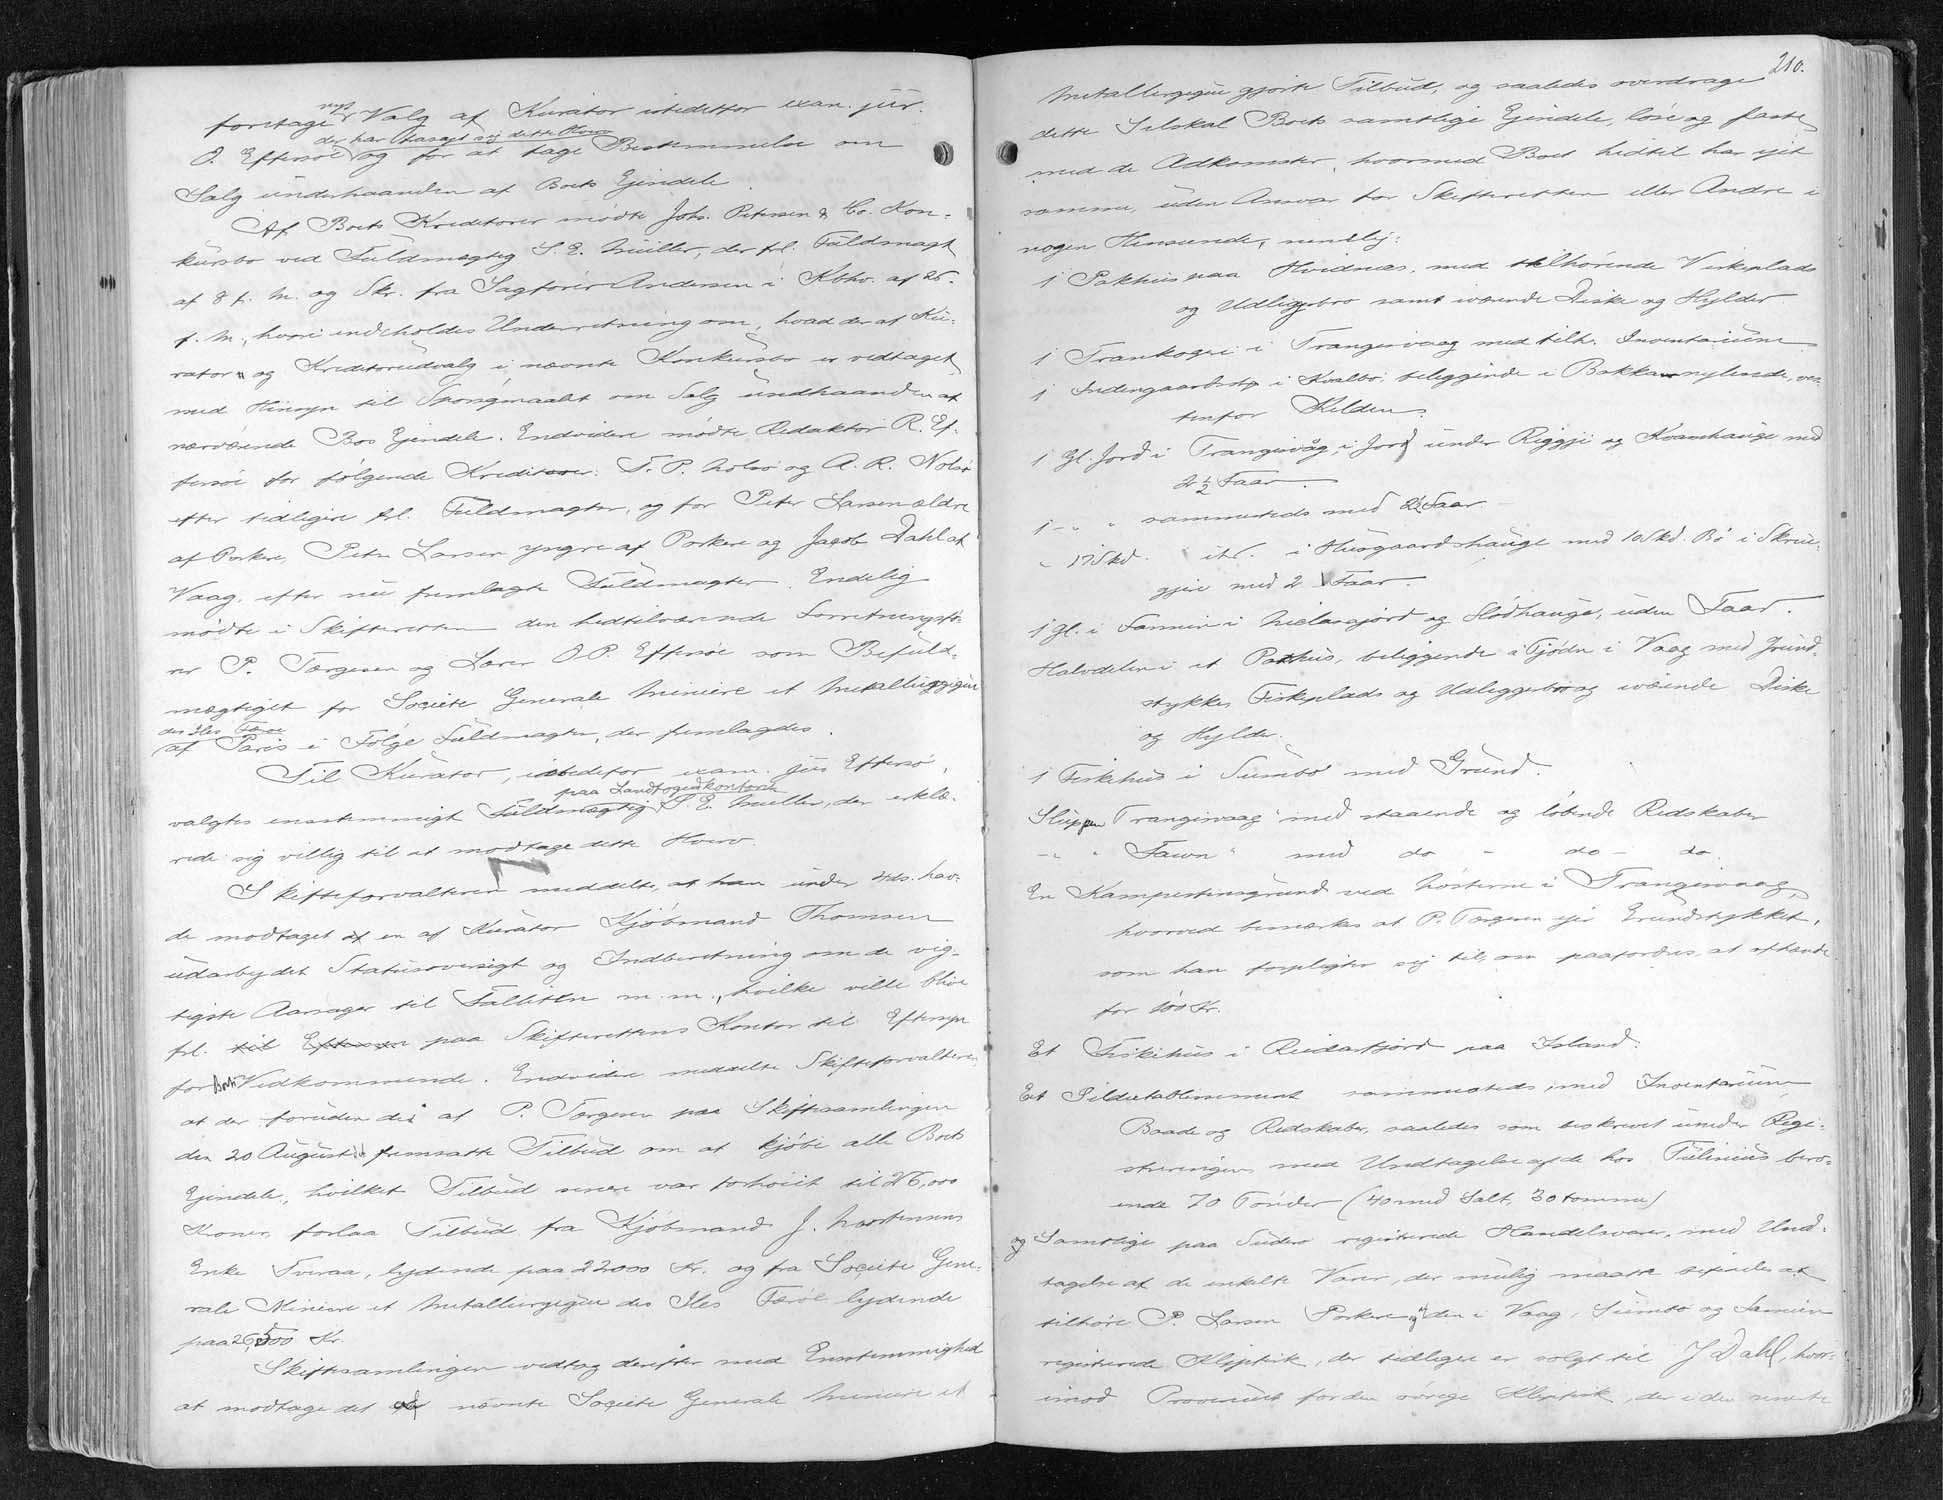 foretage nyt Valg af Kurator istedetfor exan. jur.
der har frasagt sig dette Hverv
O. Effersøe og for at tage Bestemmelse om
Salg underhaanden af Boets Ejendele.
Af Boets Kreditorer mødte Johs. Petersen & Co. Kon-
kursbo ved Fuldmægtig S. E. Müller, der frl. Fuldmagt
af 8 f. M. og Skr. fra Sagfører Andersen i Kbhv. af 26.
f. M., hvori indeholdes Underretning om, hvad der af Ku-
rator og Kreditorudvalg i nævnte Konkursbo er vedtaget
med Hinsyn til Spørgsmaalet om Salg underhaanden af
nærværende Bos Ejendele. Endvidere mødte Redaktør R. Ef-
fersøe for følgende Kreditorer: T. P. Nolsø og A. R. Nolsø
efter tidligere frl. Fuldmagter, og for Peter Larsen ældre
af Porkere, Peter Larsen yngre af Porkere og Jacob Dahl af
Vaag, efter nu fremlagte Fuldmagter. Endelig
mødte i Skifteretten den hidtilværende Forretningsfø-
rer P. Torgersen og Lærer O. P. Effersøe som Befuld-
mægtiget for Societe Generale Miniere et Metallurgique
des Iles Færoe
af Paris i Følge Fuldmagter, der fremlagdes.
Til Kurator, istedetfor exam. jur Effersø,
paa Landfogedkontoret
valgtes enstemmigt Fuldmægtig S. E. Müller, der erklæ-
rede sig villig til at modtage dette Hverv.
Skifteforvalteren meddelte, at han under 4 ds. hav-
de modtaget af en af Kurator Kjøbmand Thomsen
udarbejdet Statusoversigt og Indberetning om de vig-
tigste Aarsager til Fallitten m. m., hvilke ville blive
frl. til Eftersyn paa Skifterettens Kontor til Eftersyn
for Boets Vedkommende. Endvidere meddelte Skifteforvalteren
at der foruden det af P. Torgersen paa Skiftesamlingen
den 20 August fremsatte Tilbud om at kjøbe alle Boets
Ejendele, hvilket Tilbud senere var forhøiet til 26,000
Kroner, forlaa Tilbud fra Kjøbmand J. Mortensens
Enke Tveraa, lydende paa 22000 Kr. og fra Societe Gene-
rale Miniere et Metallurgique des Iles Færoe lydende
paa 26,500 Kr.
Skiftesamlingen vedtog derefter med Enstemmighed
at modtage det af nævnte Societe Generale Miniere et
210.
Metallurgique gjorte Tilbud, og saaledes overdrage
dette Selskab Boets samtlige Ejendele, løse og faste
med de Adkomster, hvormed Boet hidtil har ejet
samme, uden Ansvar for Skifteretten eller Andre i
nogen Henseende, nemlig:
1 Pakhus paa Hvidnæs, med tilhørende Virkeplads
og Udliggerbro samt iværende Diske og Hylder
1 Trankogeri i Trangisvaag med tilh. Inventarium
1 Indengaardsstp i Kvalbø, beliggende i Bakkanylende, ves-
tenfor Kilden.
1 Gl. Jord i Trangisvåg, i Jord under Riggji og Kvanhauge med
2 1/2 Faar.
1 - " " sammesteds med 2 1/2 Faar
" 17 Skd. itr. i Husgaardshauge med 10 Skd. Bø i Skrue-
gjeri med 2 Faar.
1 gl. i Famien i Nielasajord og Hødhauge, uden Faar.
Halvdelen i et Pakhus, beliggende a Tjødn i Vaag med Grund-
stykke, Fiskeplads og Udliggerbro og iværende Diske
og Hylder.
1 Fiskehus i Sumbø med Grund.
Sluppen "Trangisvaag" med staaende og løbende Redskaber
- " - "Fawn" med do - do - do.
En Kampestensgrund ved Nøsterne i Trangisvaag,
hvorved bemærkes at P. Torgersen ejer Grundstykket,
som han forpligter sig til, om paafordres, at afhænde
for 100 Kr.
Et Fiskehus i Reidarfjord paa Island.
Et Sildeetablissement sammesteds, med Inventarium
Baade og Redskaber, saaledes som beskrevet under Regi-
streringen med Undtagelse af de hos Tulinius bero-
ende 70 Tønder (40 med Salt, 30 tomme)
og Samtlige paa Suderø registrerede Handelsvarer, med Und-
tagelse af de enkelte Varer, der mulig maatte befindes at
tilhøre P. Larsen Porkere og den i Vaag, Sumbø og Famien
registrerede Klipfisk, der tidligere er solgt til J Dahl, hvor-
imod Provenuet for den øvrige Klipfisk, der i den nævnte